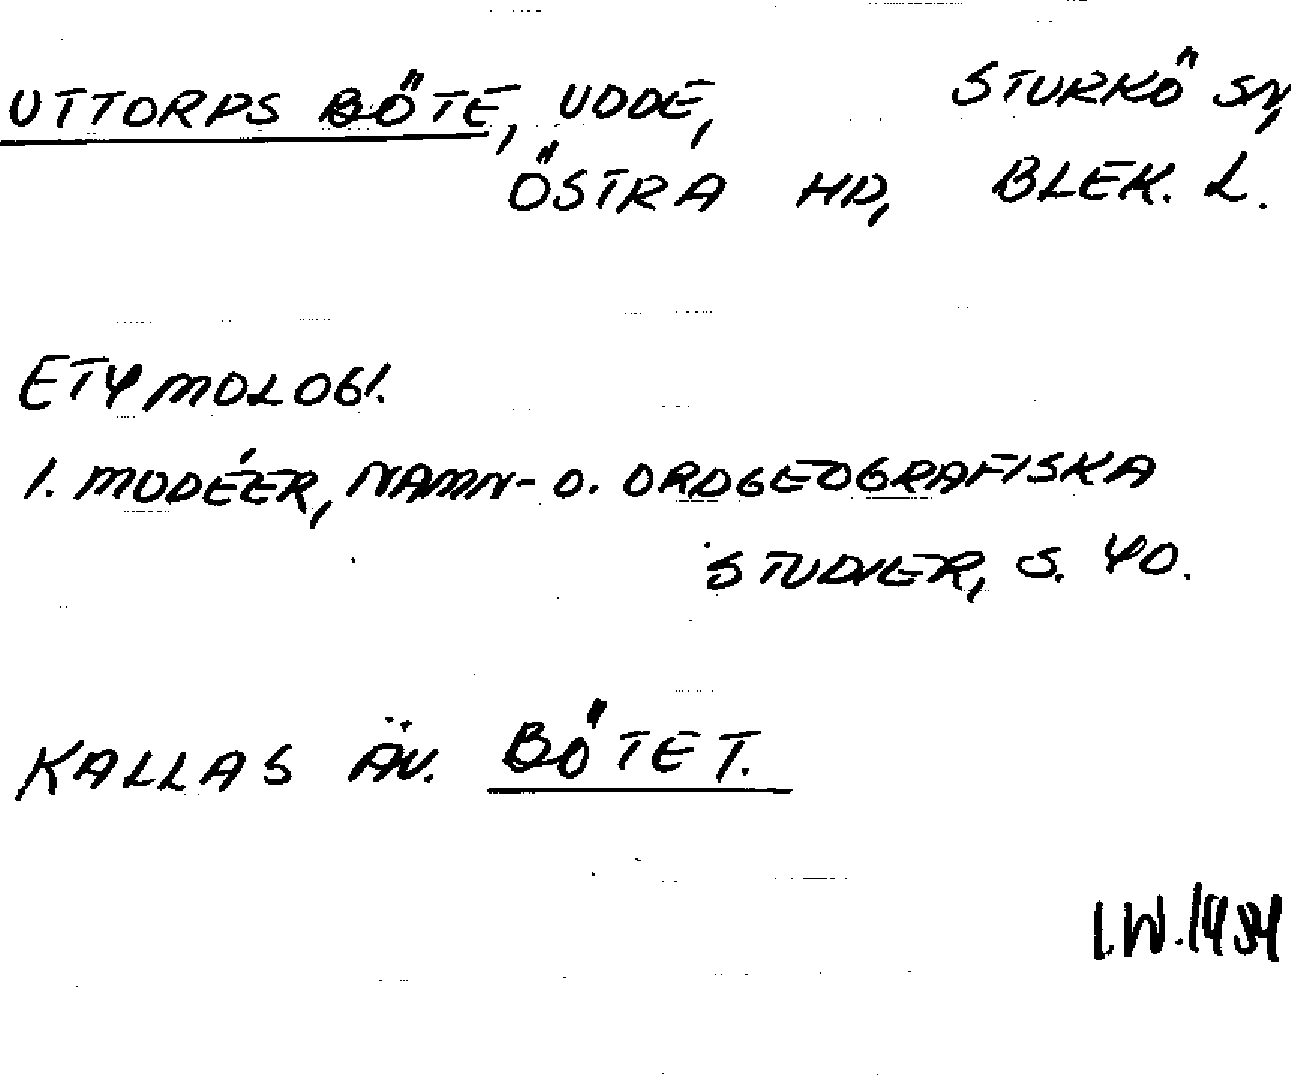 UTTORPS BÖTE, UDDE, STURKÖ SN,
ÖSTRA HD, BLEK. L.
ETYMOLOGI.
I. MODÉER, NAMN- O. ORDGEOGRAFISKA
STUDIER, S. 40.
KALLAS ÄV. BÖTET.
I.W.